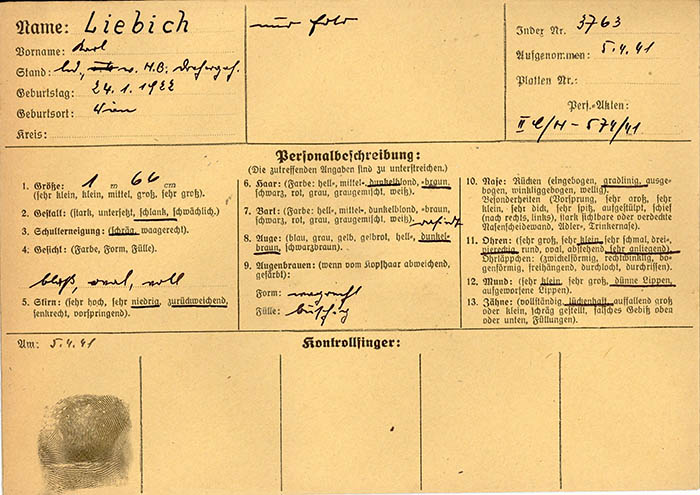 Name: Liebich
Vorname: Karl
Stand: led., v. H.B. Drehergeh.
Geburtstag: 24.1.1922
Geburtsort: Wien
Kreis:
nur Foto
Index Nr. 3763
Aufgenommen: 5.4.41
Platten Nr.:
Pers.-Akten:
II C/H - 574/41
Personalbeschreibung:
(Die zutreffenden Angaben sind zu unterstreichen.)
1. Größe: 1 m 66 cm
(sehr klein, klein, mittel, groß, sehr groß).
2. Gestalt: (stark, untersetzt, schlank, schwächlich.)
3. Schulterneigung: (schräg, waagerecht.)
4. Gesicht: (Farbe, Form, Fülle).
blaß, oval, voll
5. Stirn: (sehr hoch, sehr niedrig, zurückweichend,
senkrecht, vorspringend).
6. Haar: (Farbe: hell-, mittel-, dunkelblond, -braun,
schwarz, rot, grau, graugemischt, weiß).
7. Bart: (Farbe: hell-, mittel-, dunkelblond, -braun,
schwarz, rot, grau, graugemischt, weiß) rasiert
8. Auge: (blau, grau, gelb, gelbrot, hell-, dunkel-
braun, schwarzbraun).
9. Augenbrauen: (wenn vom Kopfhaar abweichend,
gefärbt):
Form: waagrecht
Fülle: buschig
10. Nase: Rücken (eingebogen, gradlinig, ausge-
bogen, winkliggebogen, wellig).
Besonderheiten (Vorsprung, sehr groß, sehr
klein, sehr dick, sehr spitz, aufgestülpt, schief
(nach rechts, links), stark sichtbare oder verdeckte
Nasenscheidewand, Adler-, Trinkernase).
11. Ohren: (sehr groß, sehr klein, sehr schmal, drei-,
viereckig, rund, oval, abstehend, sehr anliegend)
Ohrläppchen: (zwickelförmig, rechtwinklig, bo-
genförmig, freihängend, durchlocht, durchrissen).
12. Mund: (sehr klein, sehr groß, dünne Lippen,
aufgeworfene Lippen).
13. Zähne: (vollständig, lückenhaft, auffallend groß
oder klein, schräg gestellt, falsches Gebiß oben
oder unten, Füllungen).
Am: 5.4.41
Kontrollfinger: